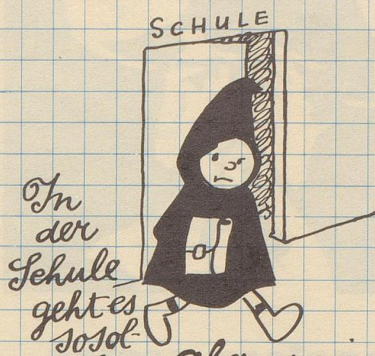 SCHULE
In
der
Schule
geht es
sosol-